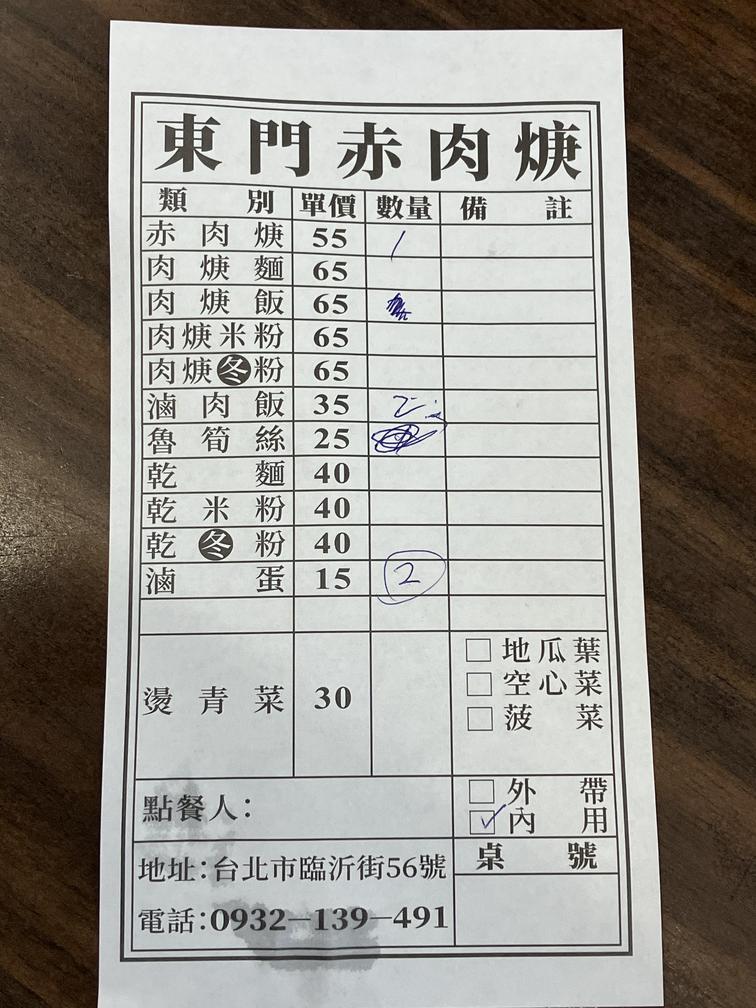 東門赤肉焿
類別 單價 數量 備註
赤肉焿 55 /
肉焿麵 65
肉焿飯 65
肉焿米粉 65
肉焿冬粉 65
滷肉飯 35 2
魯筍絲 25
乾麵 40
乾米粉 40
乾冬粉 40
滷蛋 15 2
燙青菜 30
□ 地瓜葉
□ 空心菜
□ 菠菜
點餐人:
□ 外帶
☑ 內用
地址:台北市臨沂街56號
電話:0932-139-491
桌號